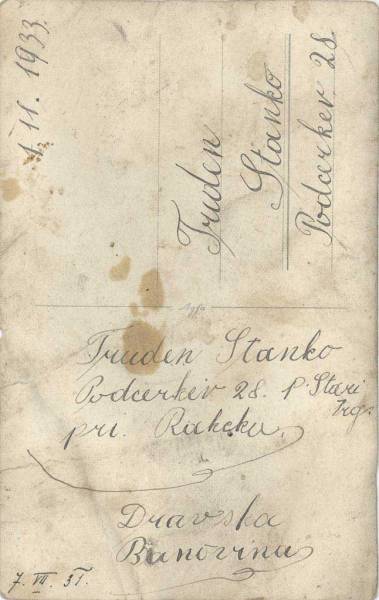 1. 11. 1933.
Truden
Stanko
Podcerkev 28.
Truden Stanko
Podcerkev 28. p. Stari
Trg.
pri. Rakeku.
Dravska
Banovina
7. VII. 35.